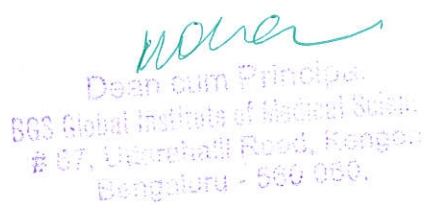 Dean cum Principal
BGS Global Institute of Medical Scien
# 67, Uttarahalli Road, Kengeri
Bengaluru - 560 060.